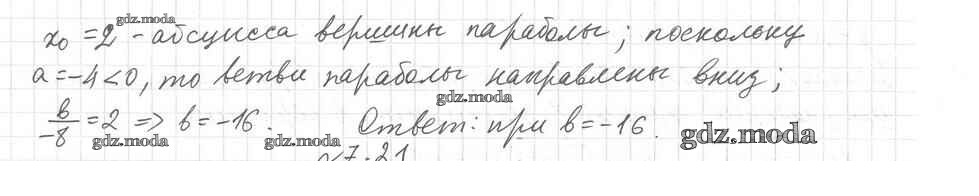 gdz.moda
x₀ = 2 - абсцисса вершины параболы; поскольку
a = -4 < 0, то ветви параболы направлены вниз;
gdz.moda
b/-8 = 2 => b = -16. Ответ: при b = -16.
gdz.moda gdz.moda gdz.moda
7.21